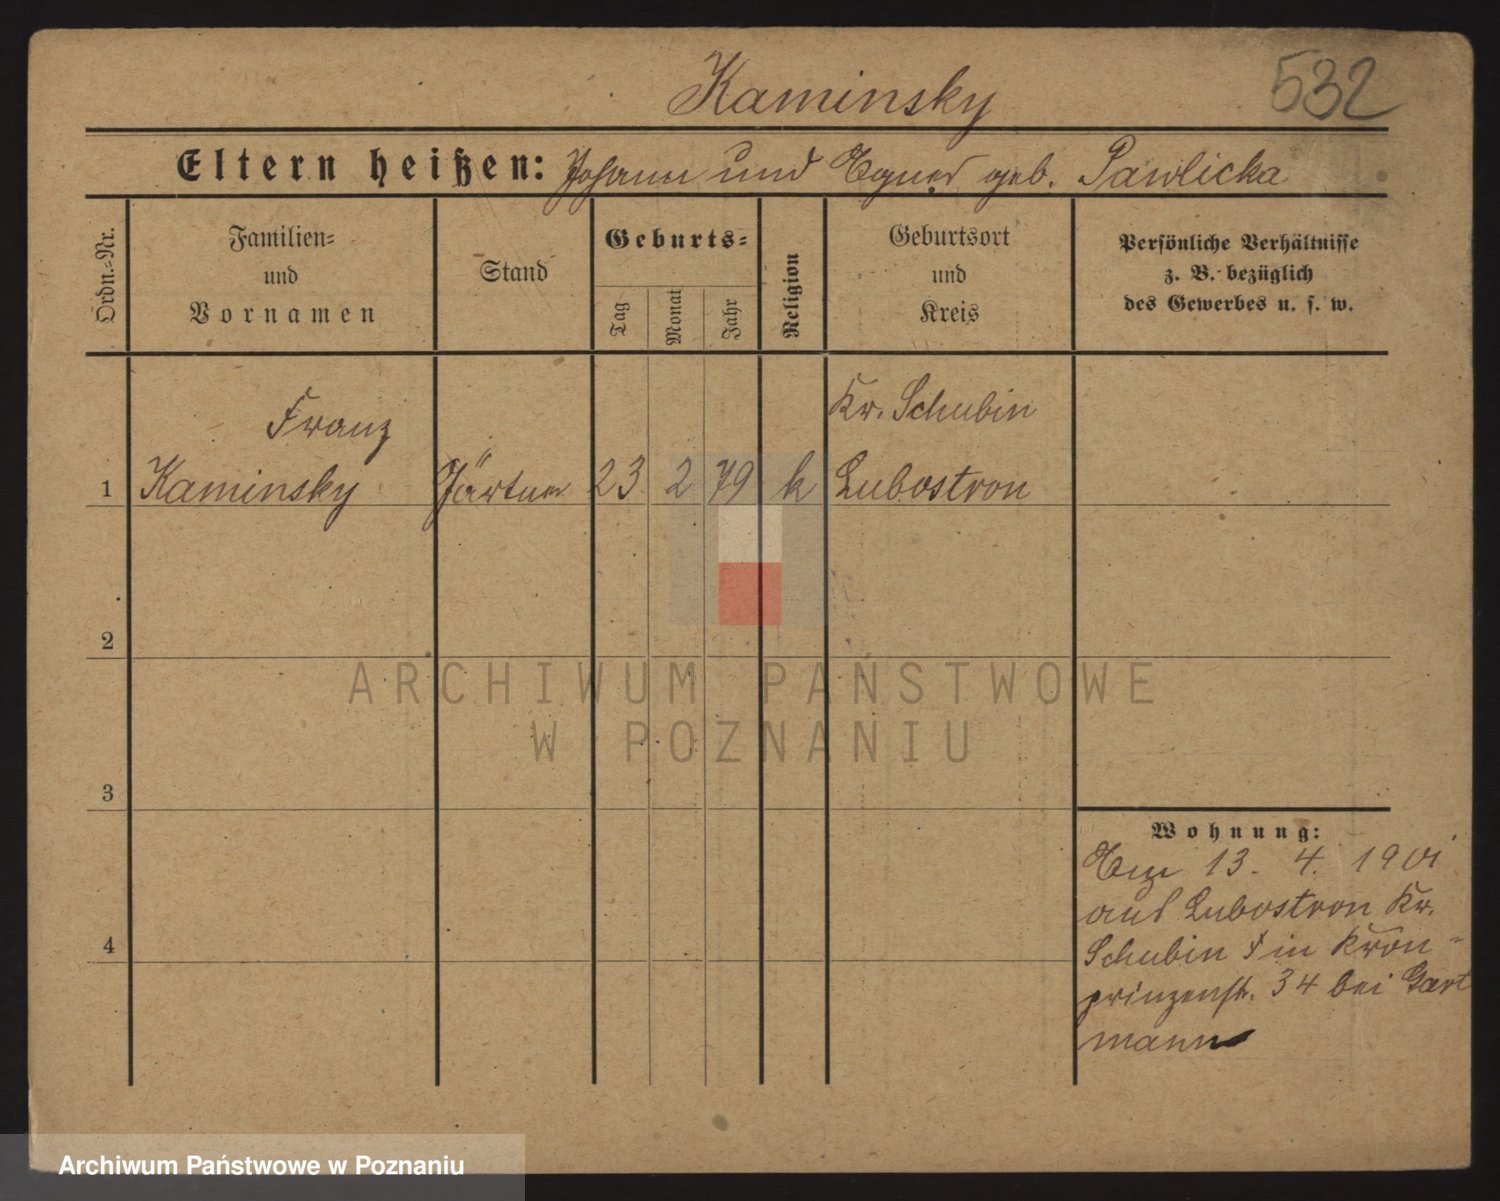 Kaminsky
532
Eltern heißen: Johann und Agnes geb. Pawlicka
Ordn.-Nr.
Familien-
und
Vornamen
Stand
Geburts-
Tag
Monat
Jahr
Religion
Geburtsort
und
Kreis
Persönliche Verhältnisse
z. B. bezüglich
des Gewerbes u. s. w.
Franz
Kr. Schubin
1 Kaminsky Gärtner 23 2 79 k Lubostron
2
ARCHIWUM PAŃSTWOWE
W POZNANIU
3
Wohnung:
13. 4. 1901
aus Lubostron Kr.
4
Schubin in Kron-
prinzenstr. 34 bei Gart
mann
Archiwum Państwowe w Poznaniu